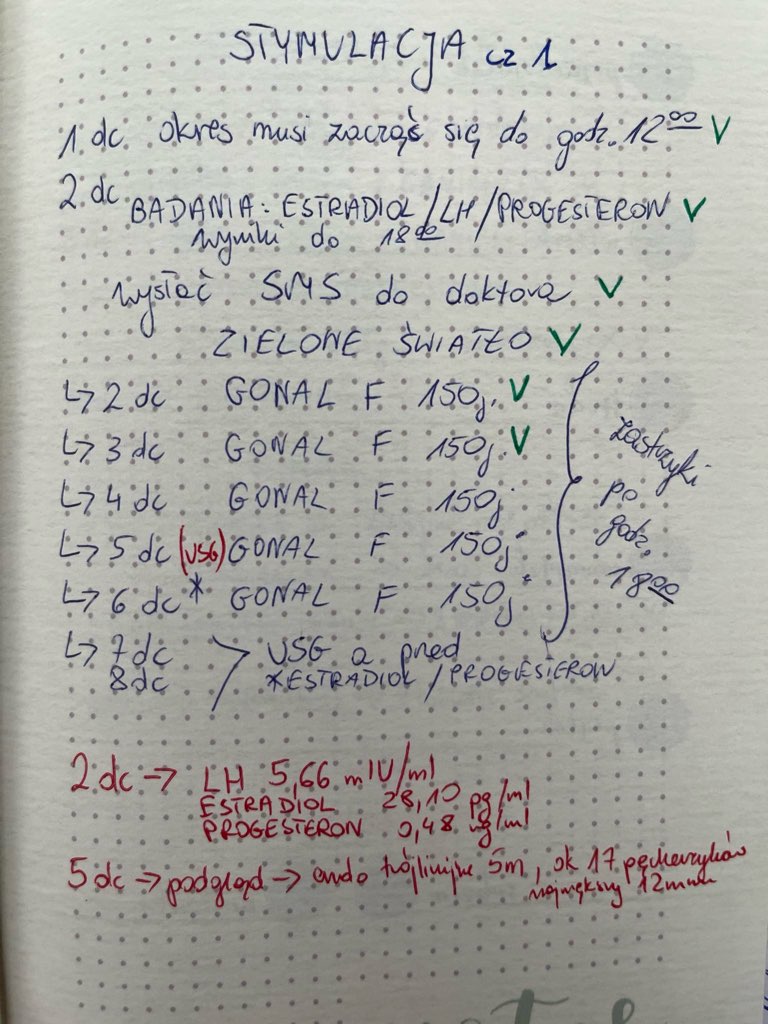 STYMULACJA cz 1
1 dc okres musi zacząć się do godz. 12⁰⁰ V
2 dc BADANIA: ESTRADIOL/LH/PROGESTERON V
wyniki do 18⁰⁰
wysłać SMS do doktora V
ZIELONE ŚWIATŁO V
↳ 2 dc GONAL F 150j. V
↳ 3 dc GONAL F 150j. V
↳ 4 dc GONAL F 150j
↳ 5 dc (USG) GONAL F 150j
↳ 6 dc * GONAL F 150j
zastrzyki
po
godz.
18⁰⁰
↳ 7 dc > USG a przed
8dc *ESTRADIOL/PROGESTERON
2 dc → LH 5,66 mIU/ml
ESTRADIOL 28,10 pg/ml
PROGESTERON 0,48 ng/ml
5 dc → podgląd → endo trójlinijne 5m, ok 17 pęcherzyków
największy 12mm